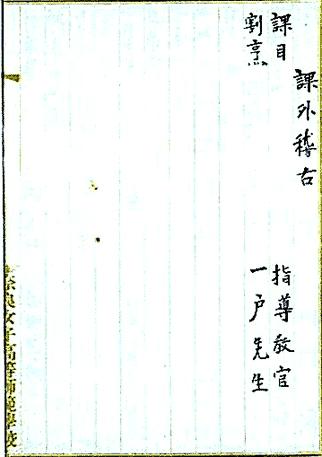 課外稽古
課目
指導教官
割烹
一戸先生
奈良女子高等師範學校